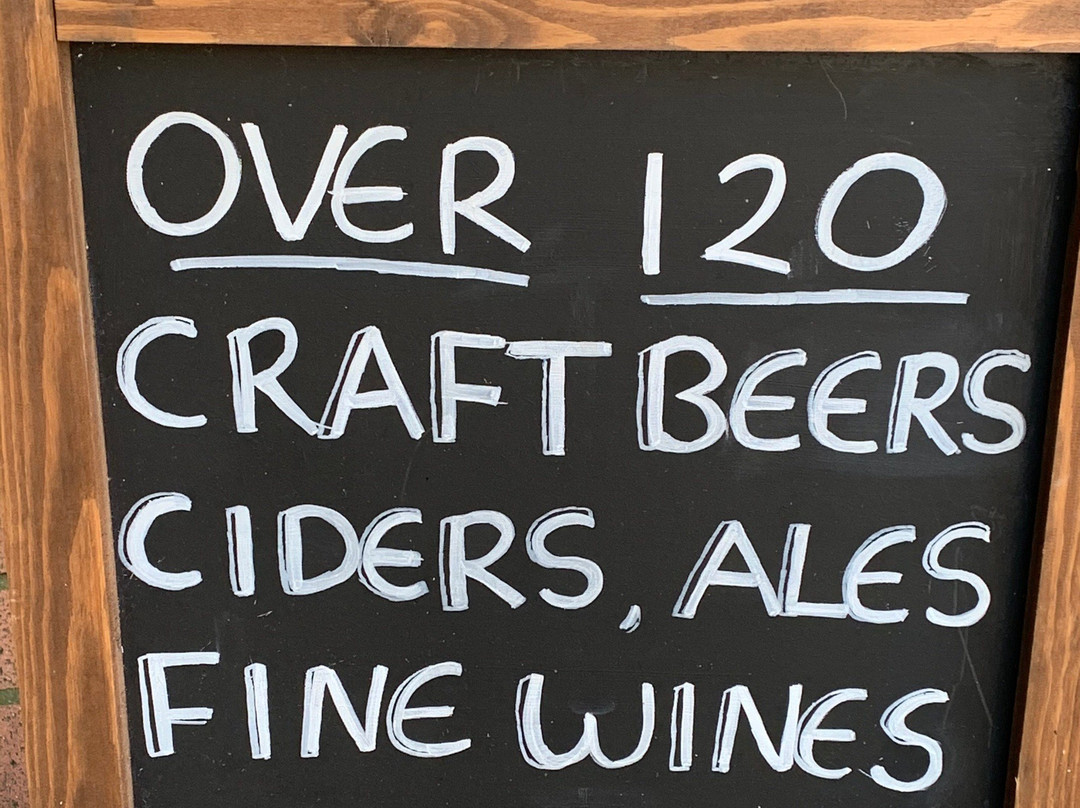 OVER 120
CRAFT BEERS
CIDERS, ALES
FINE WINES